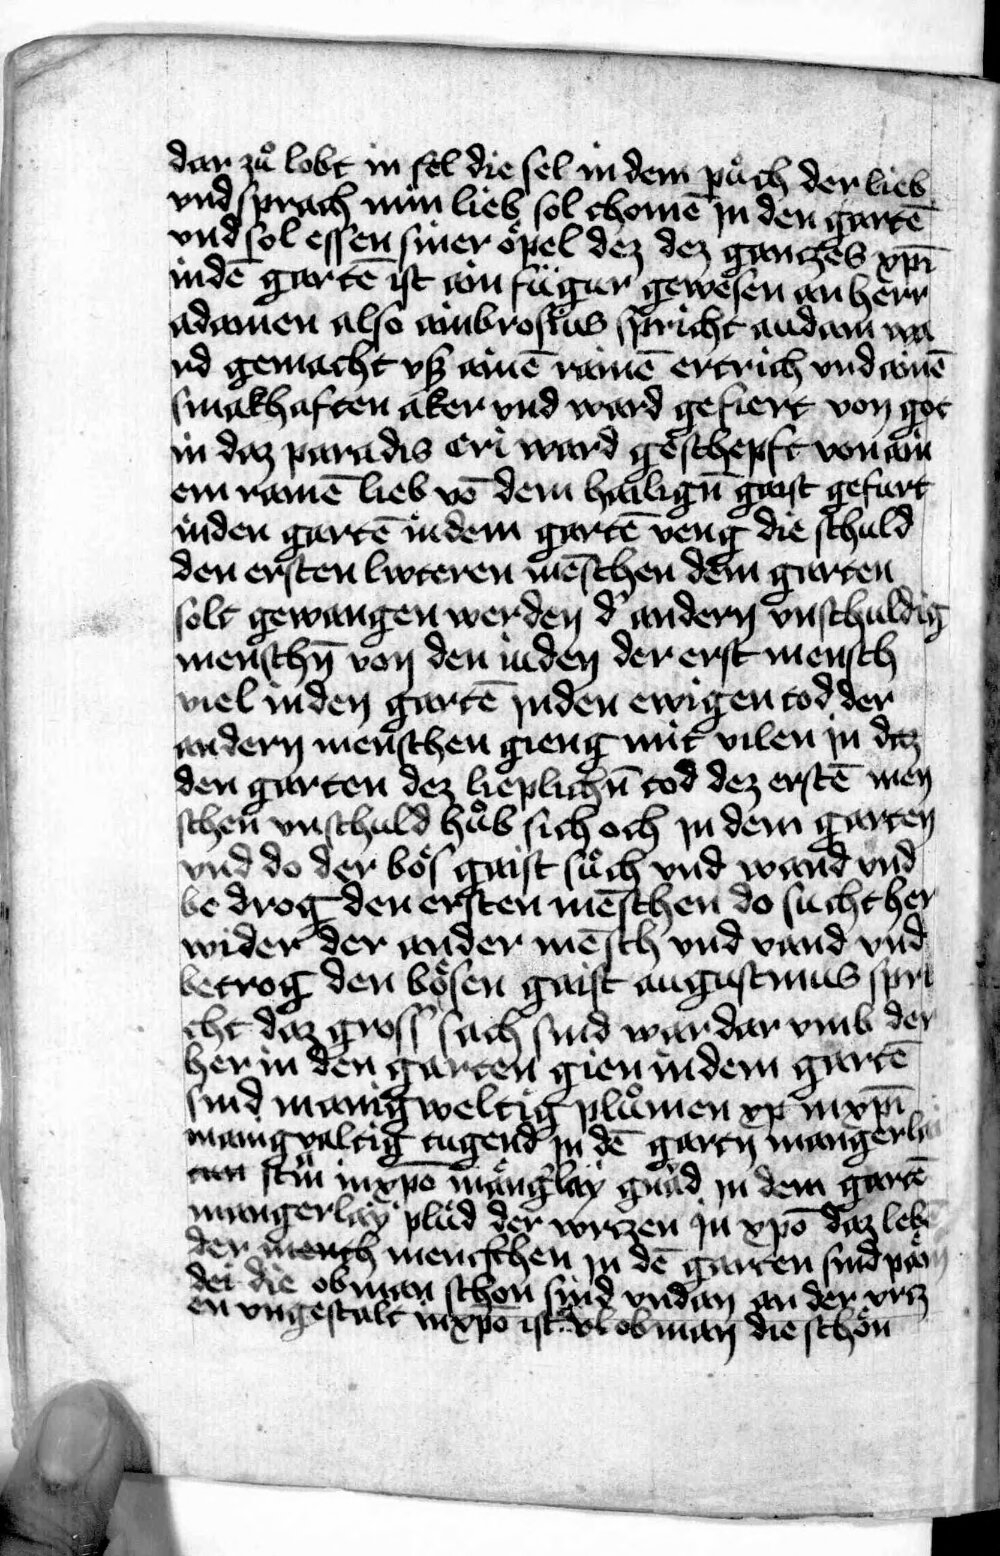 dar zů lobt in sel die sel in dem půch der lieb
vnd sprach min lieb sol chomē in den gartē
vnd sol essen siner öpel dez dez ganczes xpī
in dē gartē ist ain fügur gewesen an herr
adamen also ambrosius spricht audam wa
rd gemacht vß ainē rainē ertrich vnd ainē
smakhaften aker vnd ward gefiert von got
in daz paradis Cri ward geschepft von ain
em rainē lieb vō dem hailigñ gaist gefurt
in den gartē in dem gartē veng die schuld
den ersten lwteren mēschen dem garten
solt gewangen werden d' andern vnschuldig
menschñ von den iuden der erst mensch
viel in den gartē in den ewigen tod der
andern menschen gieng mit vilen in daz
den garten dez lieplichñ tod dez erstē men
schen vnschuld hůb sich och in dem garten
vnd do der bös gaist sůch vnd wand vnd
be drog den ersten mēschen do sucht her
wider der ander mēsch vnd vand vnd
betrog den bösen gaist augustinus spri
cht daz gross sach sind war dar vmb der
her in den garten gien in dem gartē
sind manigweltig plůmen xp in xpī
manigualtig tugend in dē gartn mangerlai
stin in xpō mangerlay gnäd in dem gartē
mangerlay plüd der wrzen in xpō daz lebē
der mensch menschen in dē garten sind päm
dei die obnan schon sind vndan an der vrz
en vngestalt in xpō ist obnan die schön